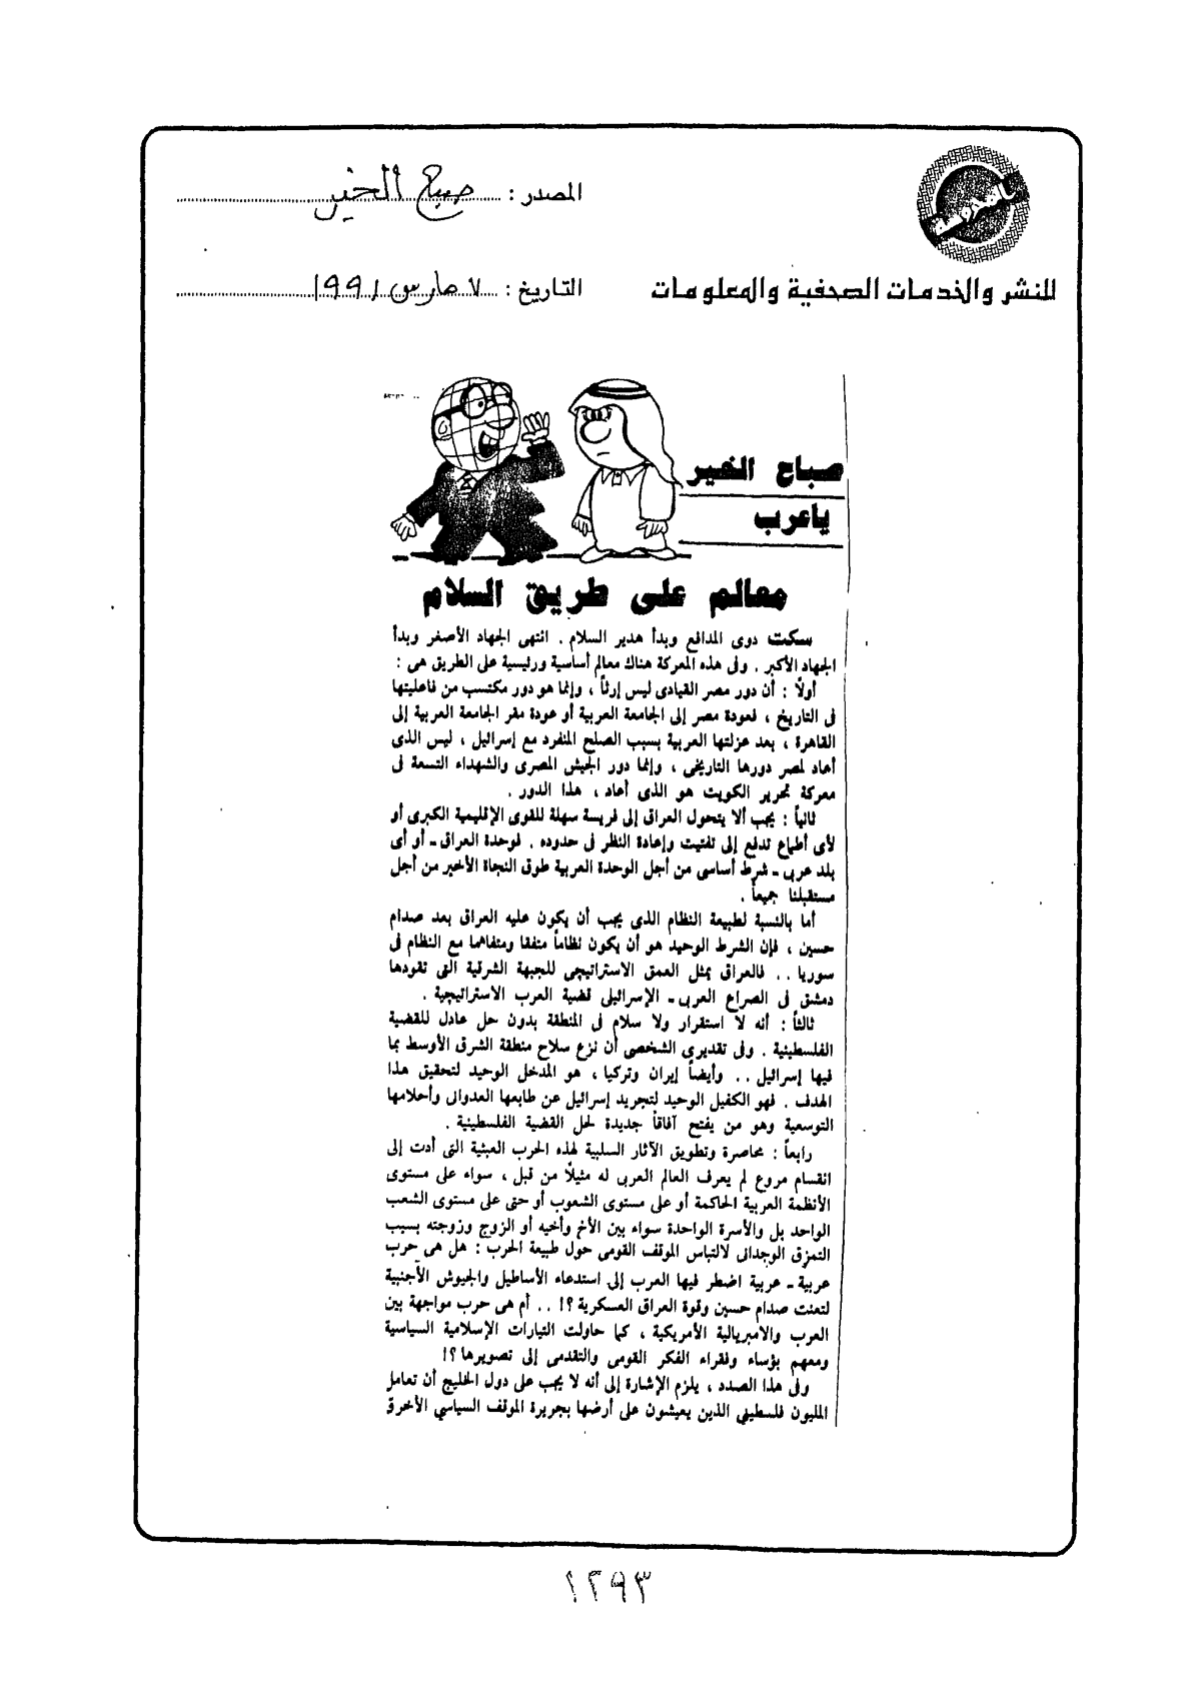 المصدر : صباح الخير
للنشر والخدمات الصحفية والمعلومات
التاريخ : ٧ مارس ١٩٩١
صباح الخير
ياعرب
معالم على طريق السلام
سكت دوى المدافع وبدأ هدير السلام . انتهى الجهاد الأصغر وبدأ
الجهاد الأكبر . وفى هذه المعركة هناك معالم أساسية ورئيسية على الطريق هى :
أولاً : أن دور مصر القيادى ليس إرثاً ، وإنما هو دور مكتسب من فاعليتها
فى التاريخ ، فعودة مصر إلى الجامعة العربية أو عودة مقر الجامعة العربية إلى
القاهرة ، بعد عزلتها العربية بسبب الصلح المنفرد مع إسرائيل ، ليس الذى
أعاد لمصر دورها التاريخى ، وإنما دور الجيش المصرى والشهداء التسعة فى
معركة تحرير الكويت هو الذى أعاد ، هذا الدور .
ثانياً : يجب ألا يتحول العراق إلى فريسة سهلة للقوى الإقليمية الكبرى أو
لأى أطماع تدفع إلى تفتيت وإعادة النظر فى حدوده . فوحدة العراق ـ أو أى
بلد عربى ـ شرط أساسى من أجل الوحدة العربية طوق النجاة الأخير من أجل
مستقبلنا جميعاً .
أما بالنسبة لطبيعة النظام الذى يجب أن يكون عليه العراق بعد صدام
حسين ، فإن الشرط الوحيد هو أن يكون نظاماً متفقا ومتفاهما مع النظام فى
سوريا . . فالعراق يمثل العمق الاستراتيجى للجبهة الشرقية التى تقودها
دمشق فى الصراع العربى ـ الإسرائيلى قضية العرب الاستراتيجية .
ثالثاً : أنه لا استقرار ولا سلام فى المنطقة بدون حل عادل للقضية
الفلسطينية . وفى تقديرى الشخصى أن نزع سلاح منطقة الشرق الأوسط بما
فيها إسرائيل . . وأيضاً إيران وتركيا ، هو المدخل الوحيد لتحقيق هذا
الهدف . فهو الكفيل الوحيد لتجريد إسرائيل عن طابعها العدوانى وأحلامها
التوسعية وهو من يفتح آفاقاً جديدة لحل القضية الفلسطينية .
رابعاً : محاصرة وتطويق الآثار السلبية لهذه الحرب العبثية التى أدت إلى
انقسام مروع لم يعرف العالم العربى له مثيلاً من قبل ، سواء على مستوى
الأنظمة العربية الحاكمة أو على مستوى الشعوب أو حتى على مستوى الشعب
الواحد بل والأسرة الواحدة سواء بين الأخ وأخيه أو الزوج وزوجته بسبب
التمزق الوجدانى لالتباس الموقف القومى حول طبيعة الحرب : هل هى حرب
عربية ـ عربية اضطر فيها العرب إلى استدعاء الأساطيل والجيوش الأجنبية
لتعنت صدام حسين وقوة العراق العسكرية ؟! . . أم هى حرب مواجهة بين
العرب والامبريالية الأمريكية ، كما حاولت التيارات الإسلامية السياسية
ومعهم بؤساء وفقراء الفكر القومى والتقدمى إلى تصويرها ؟!
وفى هذا الصدد ، يلزم الإشارة إلى أنه لا يجب على دول الخليج أن تعامل
المليون فلسطيني الذين يعيشون على أرضها بجريرة الموقف السياسي الأخرق
١٢٩٣